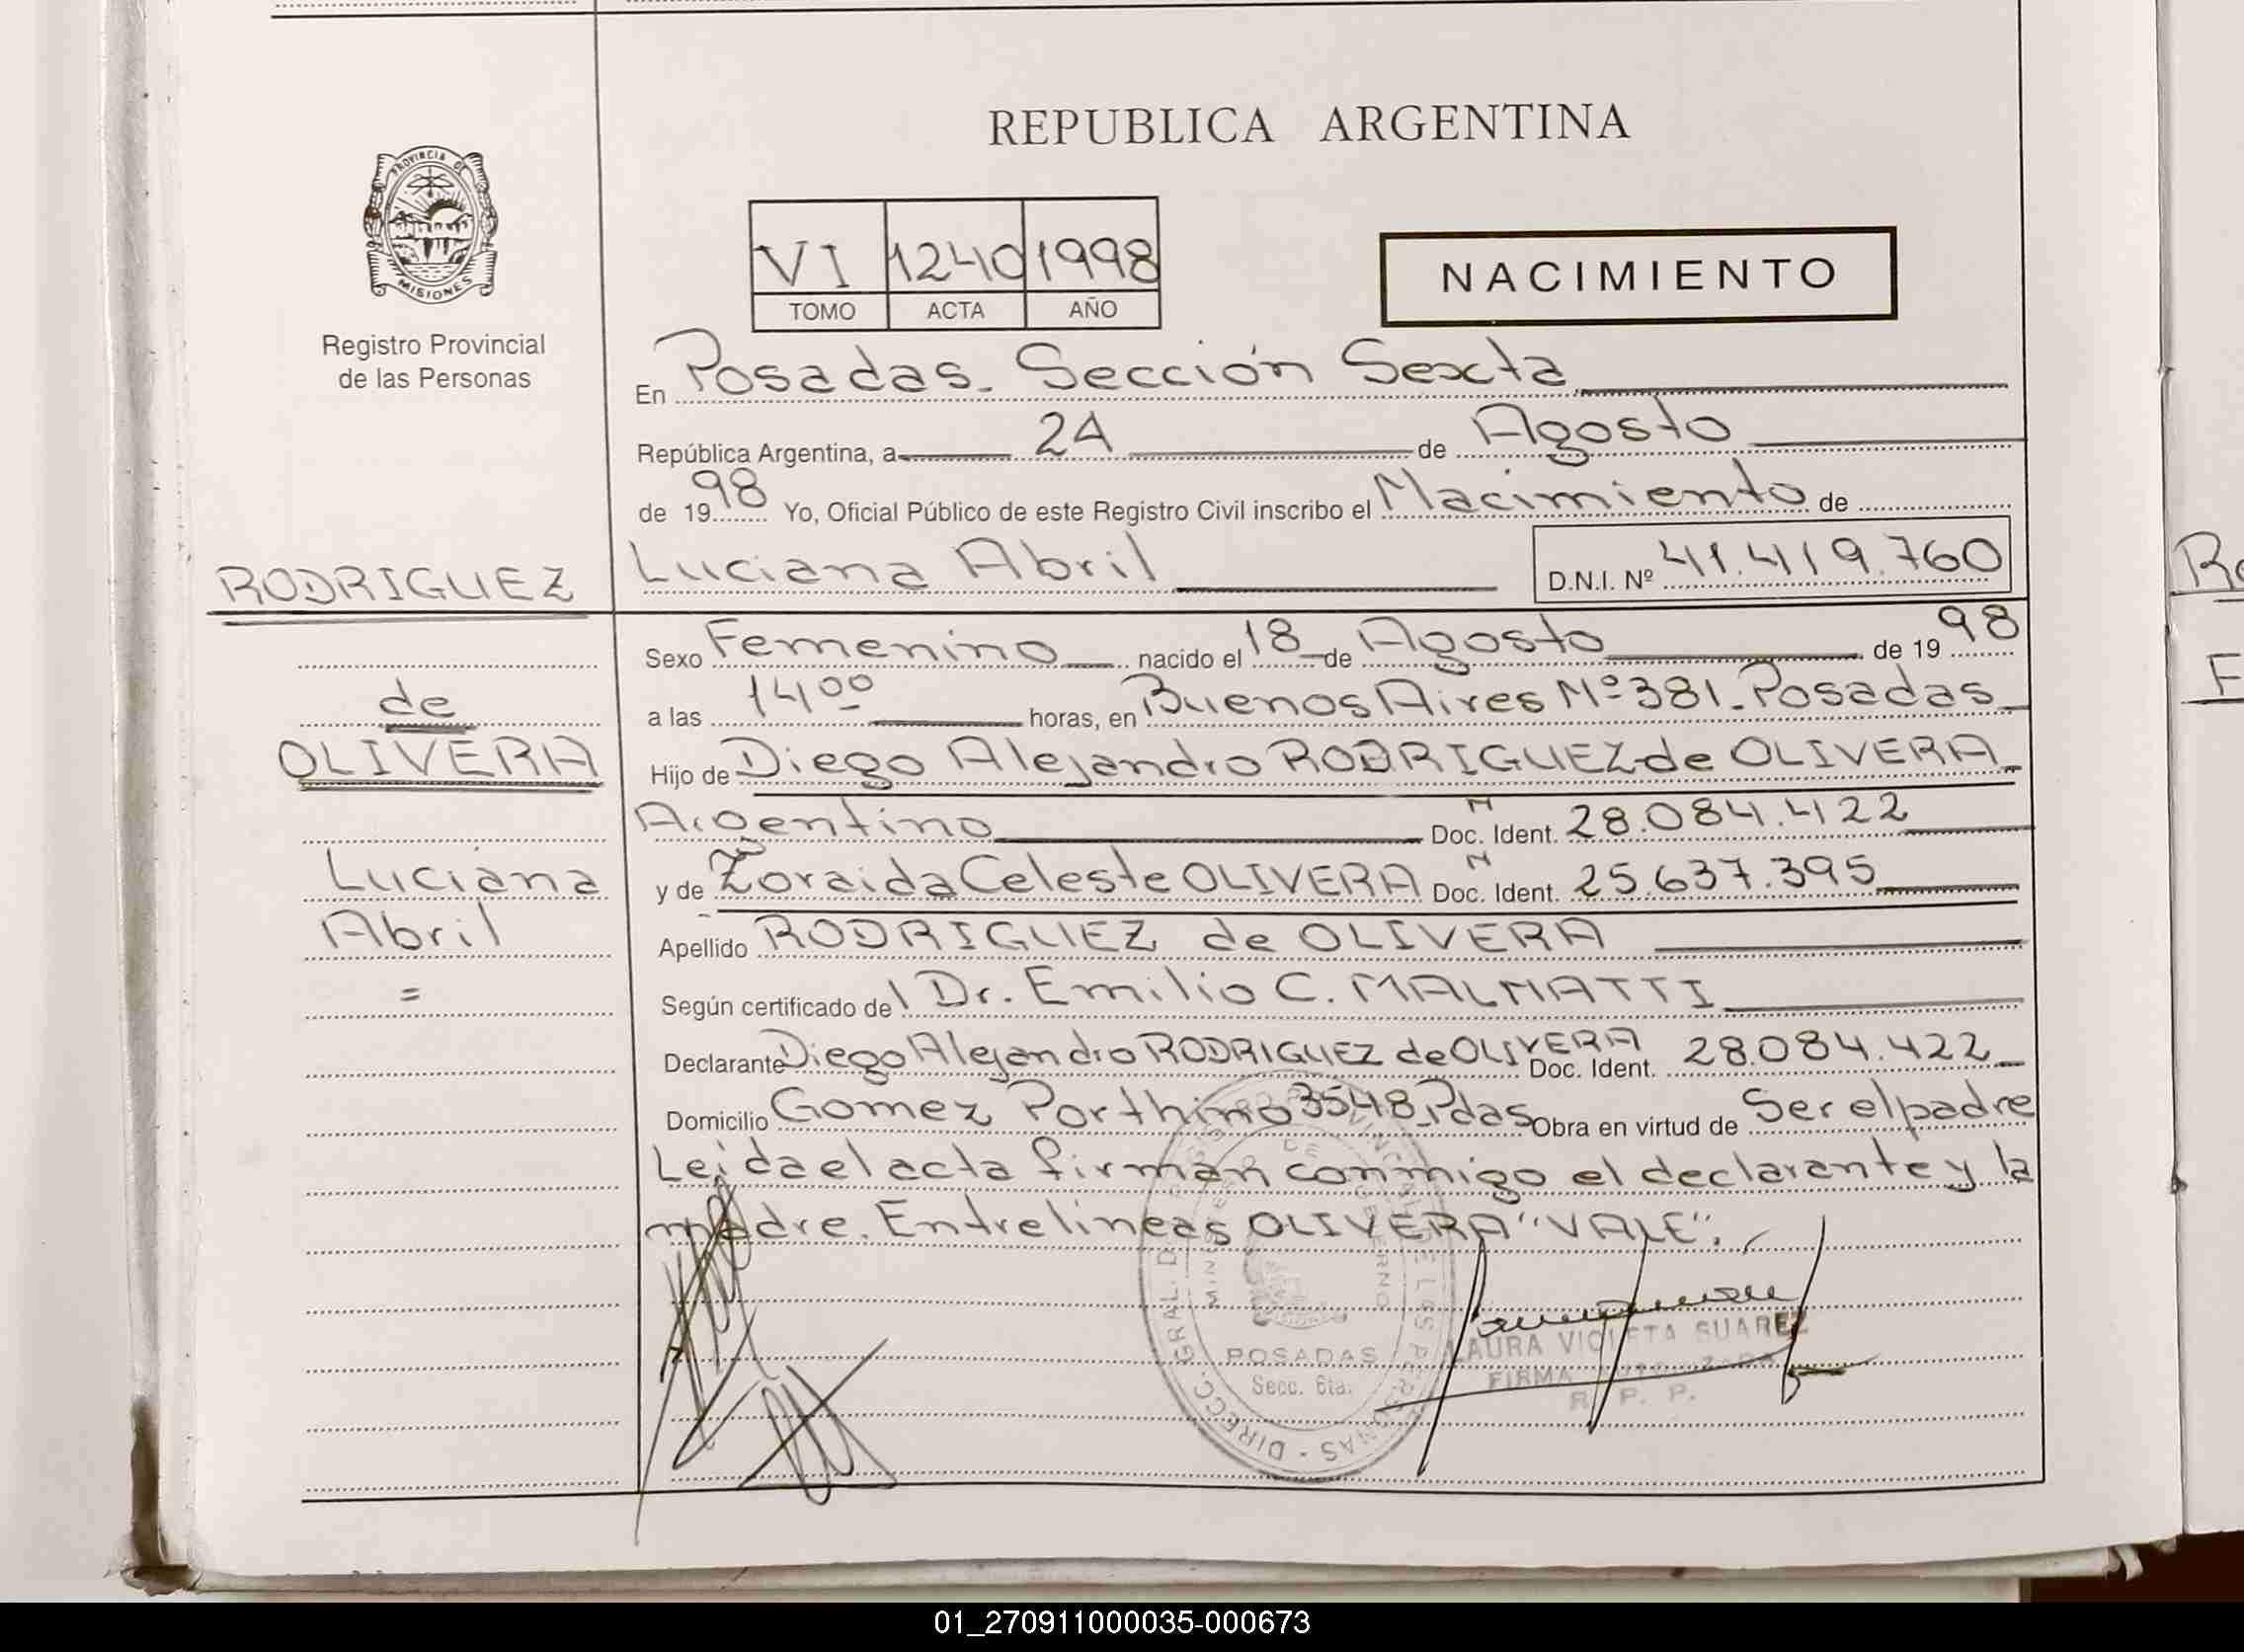 REPUBLICA ARGENTINA
PROVINCIA DE
MISIONES
Registro Provincial
de las Personas
VI 1240 1998
TOMO ACTA AÑO
NACIMIENTO
En Posadas. Sección Sexta
República Argentina, a 24 de Agosto
de 1998 Yo, Oficial Público de este Registro Civil inscribo el Nacimiento de
Luciana Abril D.N.I. Nº 41.419.760
RODRIGUEZ
de
OLIVERA
Luciana
Abril
=
Sexo Femenino nacido el 18 de Agosto de 1998
a las 14 00 horas, en Buenos Aires Nº 381. Posadas
Hijo de Diego Alejandro RODRIGUEZ de OLIVERA
Argentino Doc. Ident. N 28.084.422
y de Zoraida Celeste OLIVERA Doc. Ident. N 25.637.395
Apellido RODRIGUEZ de OLIVERA
Según certificado del Dr. Emilio C. MALMATTI
Declarante Diego Alejandro RODRIGUEZ de OLIVERA Doc. Ident. 28.084.422
Domicilio Gomez Porthino 3548. Pdas Obra en virtud de Ser el padre
Leida el acta firman conmigo el declarante y la
madre. Entrelineas OLIVERA "VALE".
POSADAS
Secc. 6ta.
LAURA VIOLETA SUAREZ
FIRMA
R. P. P.
01_270911000035-000673